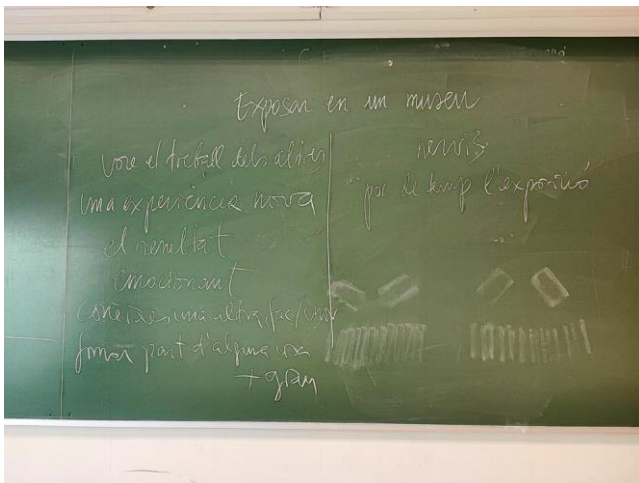 Exposar en un museu
vore el treball dels altres
una experiència nova
el resultat
emocionant
conèixer una altra
formar part d'alguna cosa
+ gran
nervis
poc de temps l'exposició